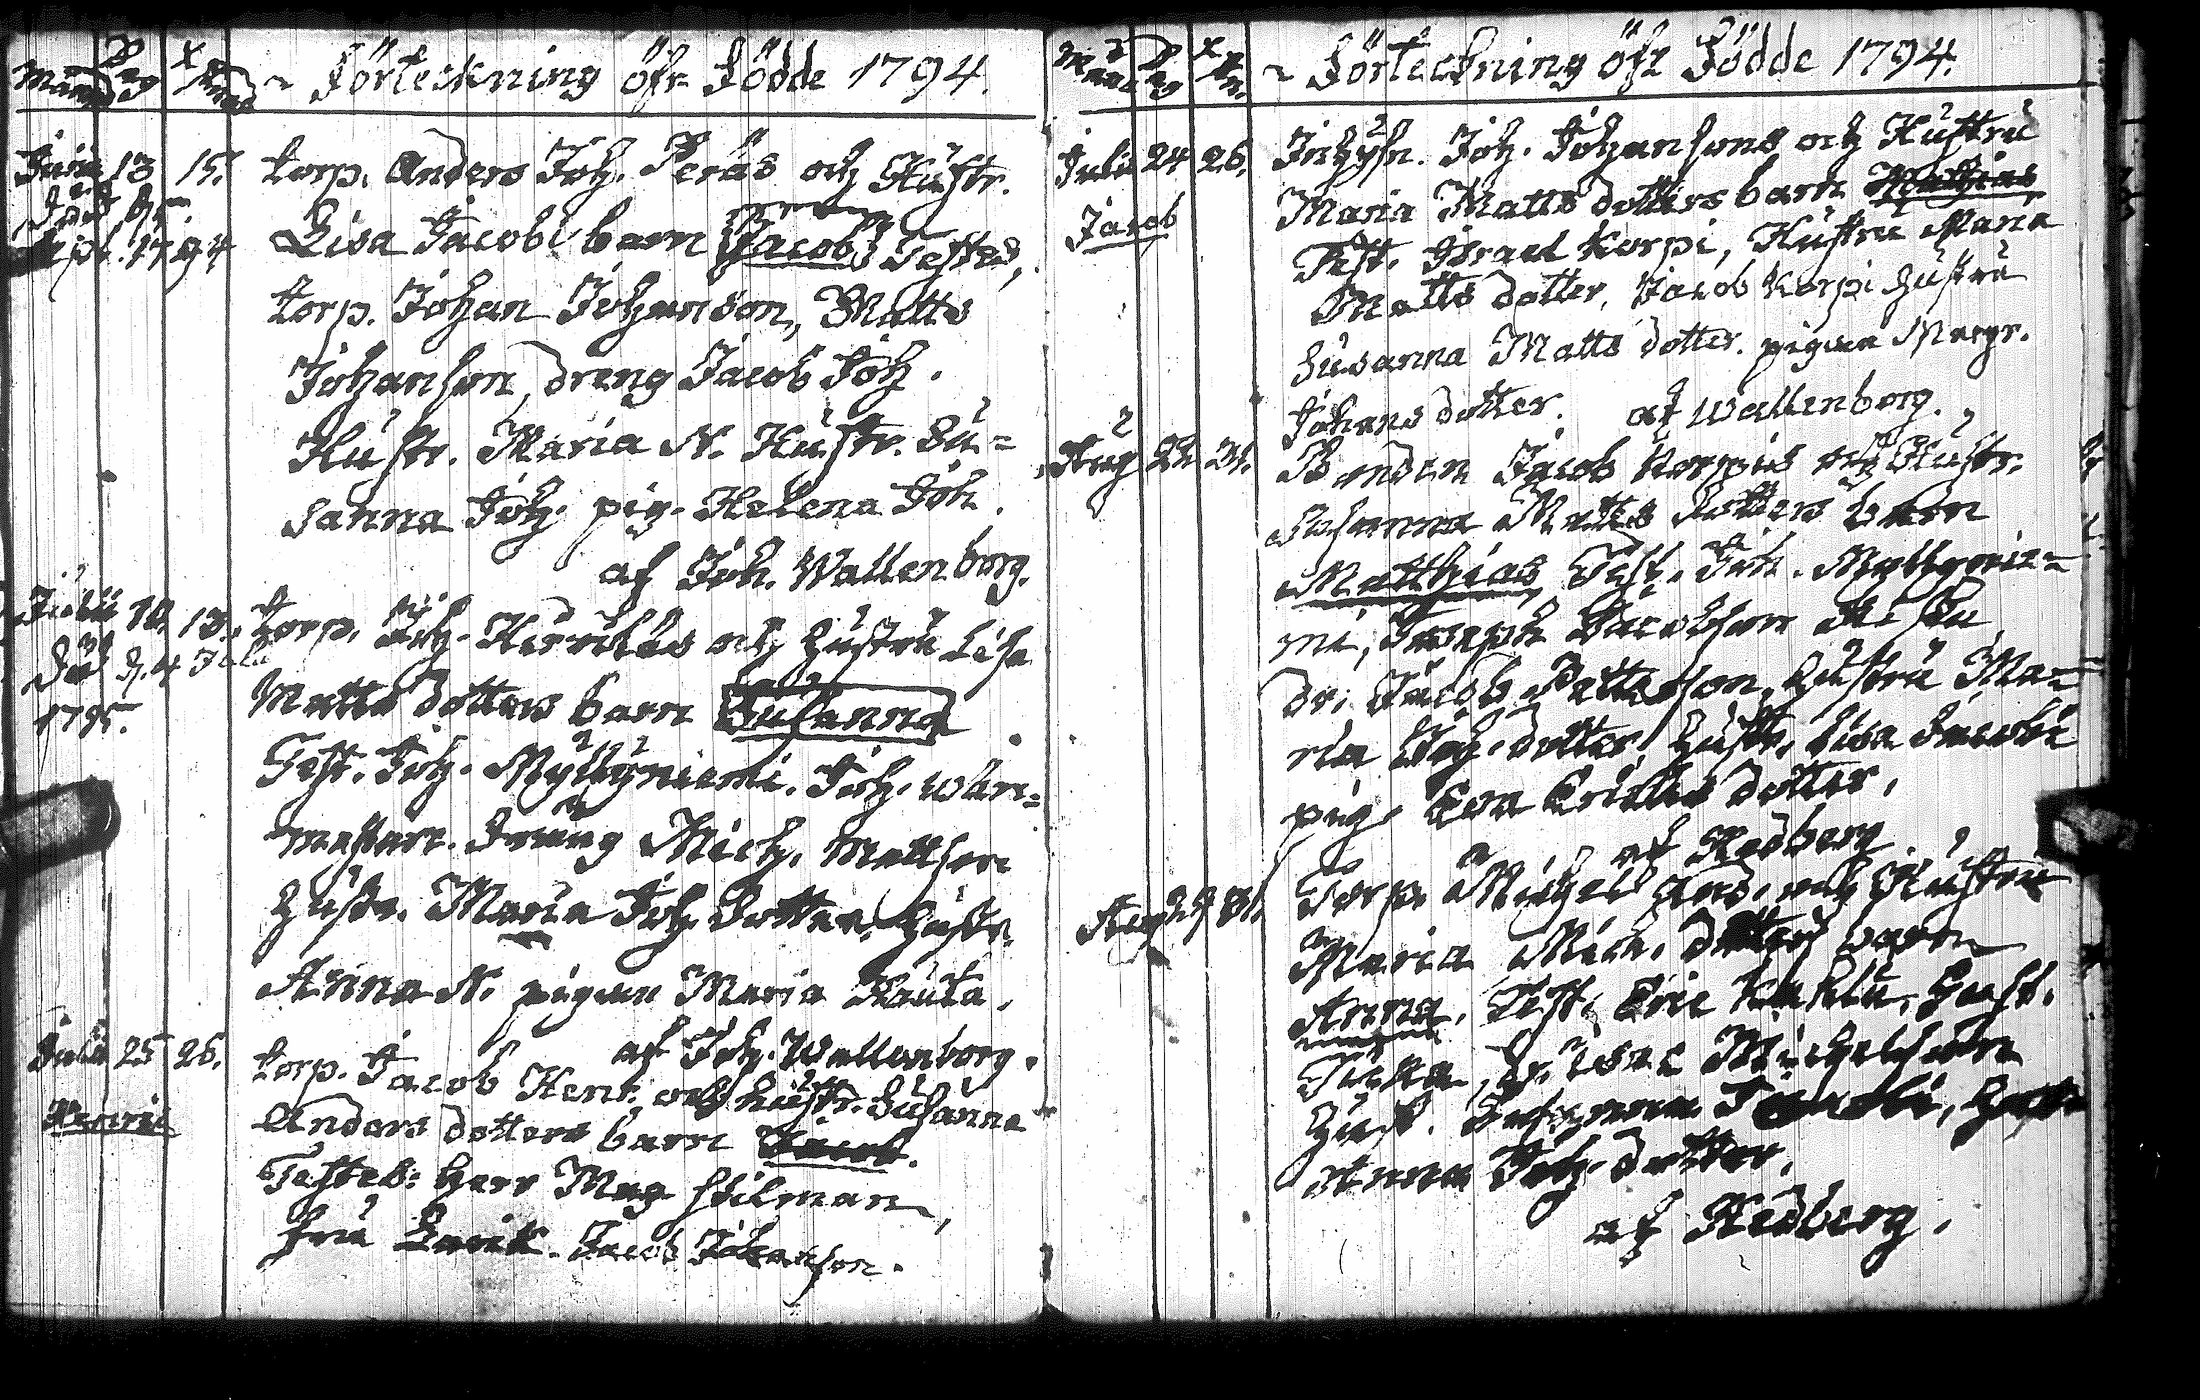 Månad Dag Xtnad ~ Förteckning öfr Födde 1794.
Junii 13 15. torp. Anders Joh. Peräs och Hustr.
död
Sept. 1794 Lisa Jacobi barn Jacob, Testes,
torp. Johan Johanson, Matts
Johanson, dreng Jacob Joh.
Hustr. Maria N. Hustr. Su=
sanna Joh. pig. Helena Joh.
af Joh. Wallenborg.
Julii 10. 13. torp. Joh. och hustru Lisa
död d. 4 Julii
1795. Matts dotters barn Susanna
Test. Joh. Myllyniemi. Joh. wär=
mästare. dräng Mich. Mattson
hustr. Maria Joh. Dotter, hustr.
Anna N. pigan Maria
af Joh. Wallenborg.
Julii 25 26. torp. Jacob Henr. och hustr. Susanna
Henric Anders dotters barn Jacob.
Testes: herr Mag Stilman,
fru Jacob Johanson.
Månad Dag Xtn. ~ Förteckning öfr Födde 1794.
Julii 24 26. Inhysn. Joh. Johansons och Hustru
Jacob Maria Matts dotters barn Mathias
Test. Israel Korpi, Hustru Maria
Matts dotter, Jacob Korpi hustru
Susanna Matts dotter. pigan Margr.
Johans dotter. af Wallenborg.
Aug 31. Bonden Jacob Korpis och Hustr.
Susanna Matts dotters barn
Matthias, Test. Joh. Myllynie=
mi, Joseph Jacobson
dr. Jacob Pettersson, hustru Ma=
ria Joh. dotter, hustr. Lisa Jacobi
pig. Eva Ericks dotter,
af Hedberg
Aug 29 31. Torp. Michel And. och Hustru
Maria Mich. dotters barn
Anna, Test. Eric hust.
dr. Isac Michelson
hust. Susanna Jacobi,
Anna Joh. dotter,
af Hedberg.